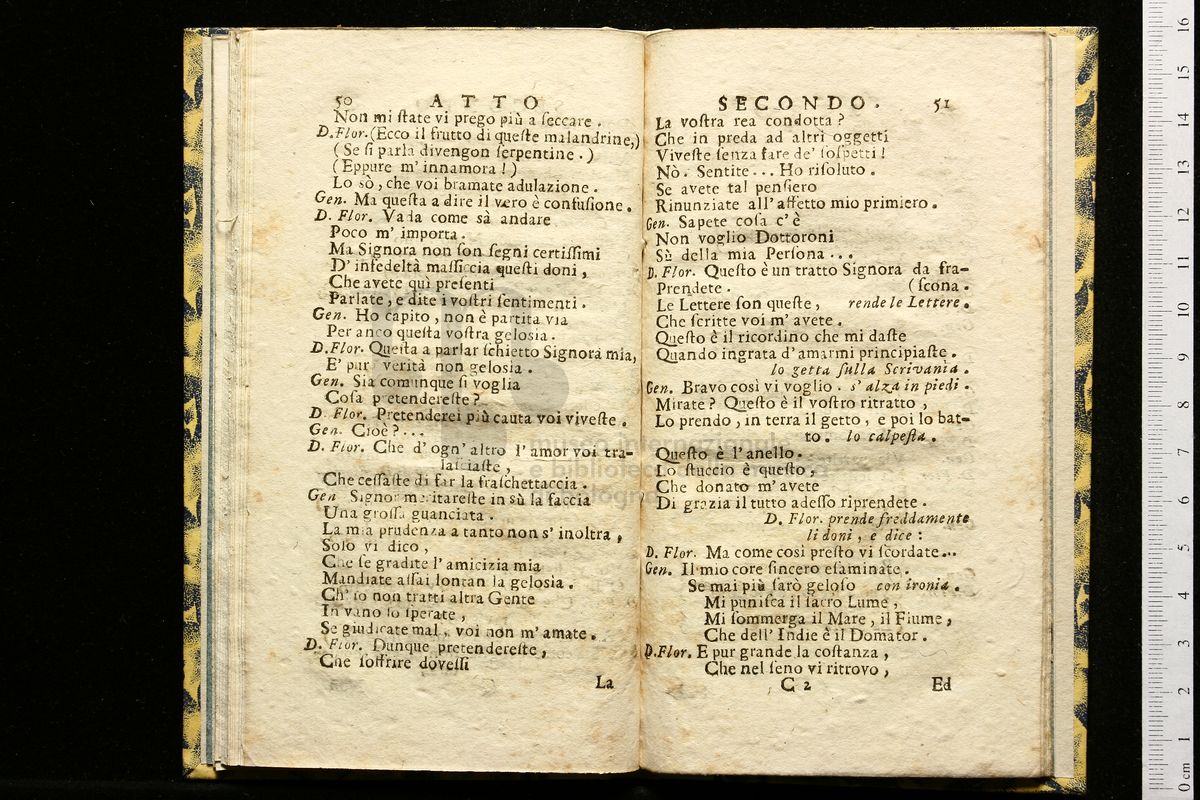 50 ATTO
Non mi ſtate vi prego più a ſeccare.
D. Flor. (Ecco il frutto di queſte malandrine,)
(Se ſi parla divengon ſerpentine.)
(Eppure m' innamora!)
Lo sò, che voi bramate adulazione.
Gen. Ma queſta a dire il vero è confuſione.
D. Flor. Vada come sà andare
Poco m' importa.
Ma Signora non ſon ſegni certiſſimi
D' infedeltà maſſiccia queſti doni,
Che avete quì preſenti
Parlate, e dite i voſtri ſentimenti.
Gen. Ho capito, non è partita via
Per anco queſta voſtra geloſia.
D. Flor. Queſta a parlar ſchietto Signora mia,
E' pur verità non geloſia.
Gen. Sia comunque ſi voglia
Coſa pretendereſte?
D. Flor. Pretenderei più cauta voi viveſte.
Gen. Cioè?...
D. Flor. Che d' ogn' altro l' amor voi tra-
laſciaſte,
Che ceſſaſte di far la fraſchettaccia.
Gen Signor meritareſte in sù la faccia
Una groſſa guanciata.
La mia prudenza a tanto non s' inoltra,
Solo vi dico,
Che ſe gradite l' amicizia mia
Mandiate aſſai lontan la geloſia.
Ch' io non tratti altra Gente
In vano lo ſperate,
Se giudicate mal, voi non m' amate.
D. Flor. Dunque pretendereſte,
Che ſoffrire doveſſi
La
SECONDO. 51
La voſtra rea condotta?
Che in preda ad altri oggetti
Viveſte ſenza fare de' ſoſpetti!
Nò. Sentite... Ho riſoluto.
Se avete tal penſiero
Rinunziate all' affetto mio primiero.
Gen. Sapete coſa c' è
Non voglio Dottoroni
Sù della mia Perſona...
D. Flor. Queſto è un tratto Signora da fra-
Prendete. (ſcona.
Le Lettere ſon queſte, rende le Lettere.
Che ſcritte voi m' avete.
Queſto è il ricordino che mi daſte
Quando ingrata d' amarmi principiaſte.
lo getta ſulla Scrivania.
Gen. Bravo così vi voglio. s' alza in piedi.
Mirate? Queſto è il voſtro ritratto,
Lo prendo, in terra il getto, e poi lo bat-
to. lo calpeſta.
Queſto è l' anello.
Lo ſtuccio è queſto,
Che donato m' avete
Di grazia il tutto adeſſo riprendete.
D. Flor. prende freddamente
li doni, e dice:
D. Flor. Ma come così preſto vi ſcordate...
Gen. Il mio core ſincero eſaminate.
Se mai più ſarò geloſo con ironia.
Mi puniſca il ſacro Lume,
Mi ſommerga il Mare, il Fiume,
Che dell' Indie è il Domator.
D. Flor. E pur grande la coſtanza,
Che nel ſeno vi ritrovo,
C 2 Ed
museo internazionale
e biblioteca